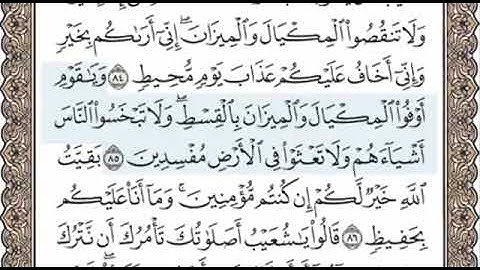 وَلَا تَنقُصُوا۟ ٱلْمِكْيَالَ وَٱلْمِيزَانَ ۚ إِنِّىٓ أَرَىٰكُم بِخَيْرٍ
وَإِنِّىٓ أَخَافُ عَلَيْكُمْ عَذَابَ يَوْمٍ مُّحِيطٍ ٨٤ وَيَٰقَوْمِ
أَوْفُوا۟ ٱلْمِكْيَالَ وَٱلْمِيزَانَ بِٱلْقِسْطِ ۖ وَلَا تَبْخَسُوا۟ ٱلنَّاسَ
أَشْيَآءَهُمْ وَلَا تَعْثَوْا۟ فِى ٱلْأَرْضِ مُفْسِدِينَ ٨٥ بَقِيَّتُ
ٱللَّهِ خَيْرٌ لَّكُمْ إِن كُنتُم مُّؤْمِنِينَ ۚ وَمَآ أَنَا۠ عَلَيْكُم
بِحَفِيظٍ ٨٦ قَالُوا۟ يَٰشُعَيْبُ أَصَلَوٰتُكَ تَأْمُرُكَ أَن نَّتْرُكَ